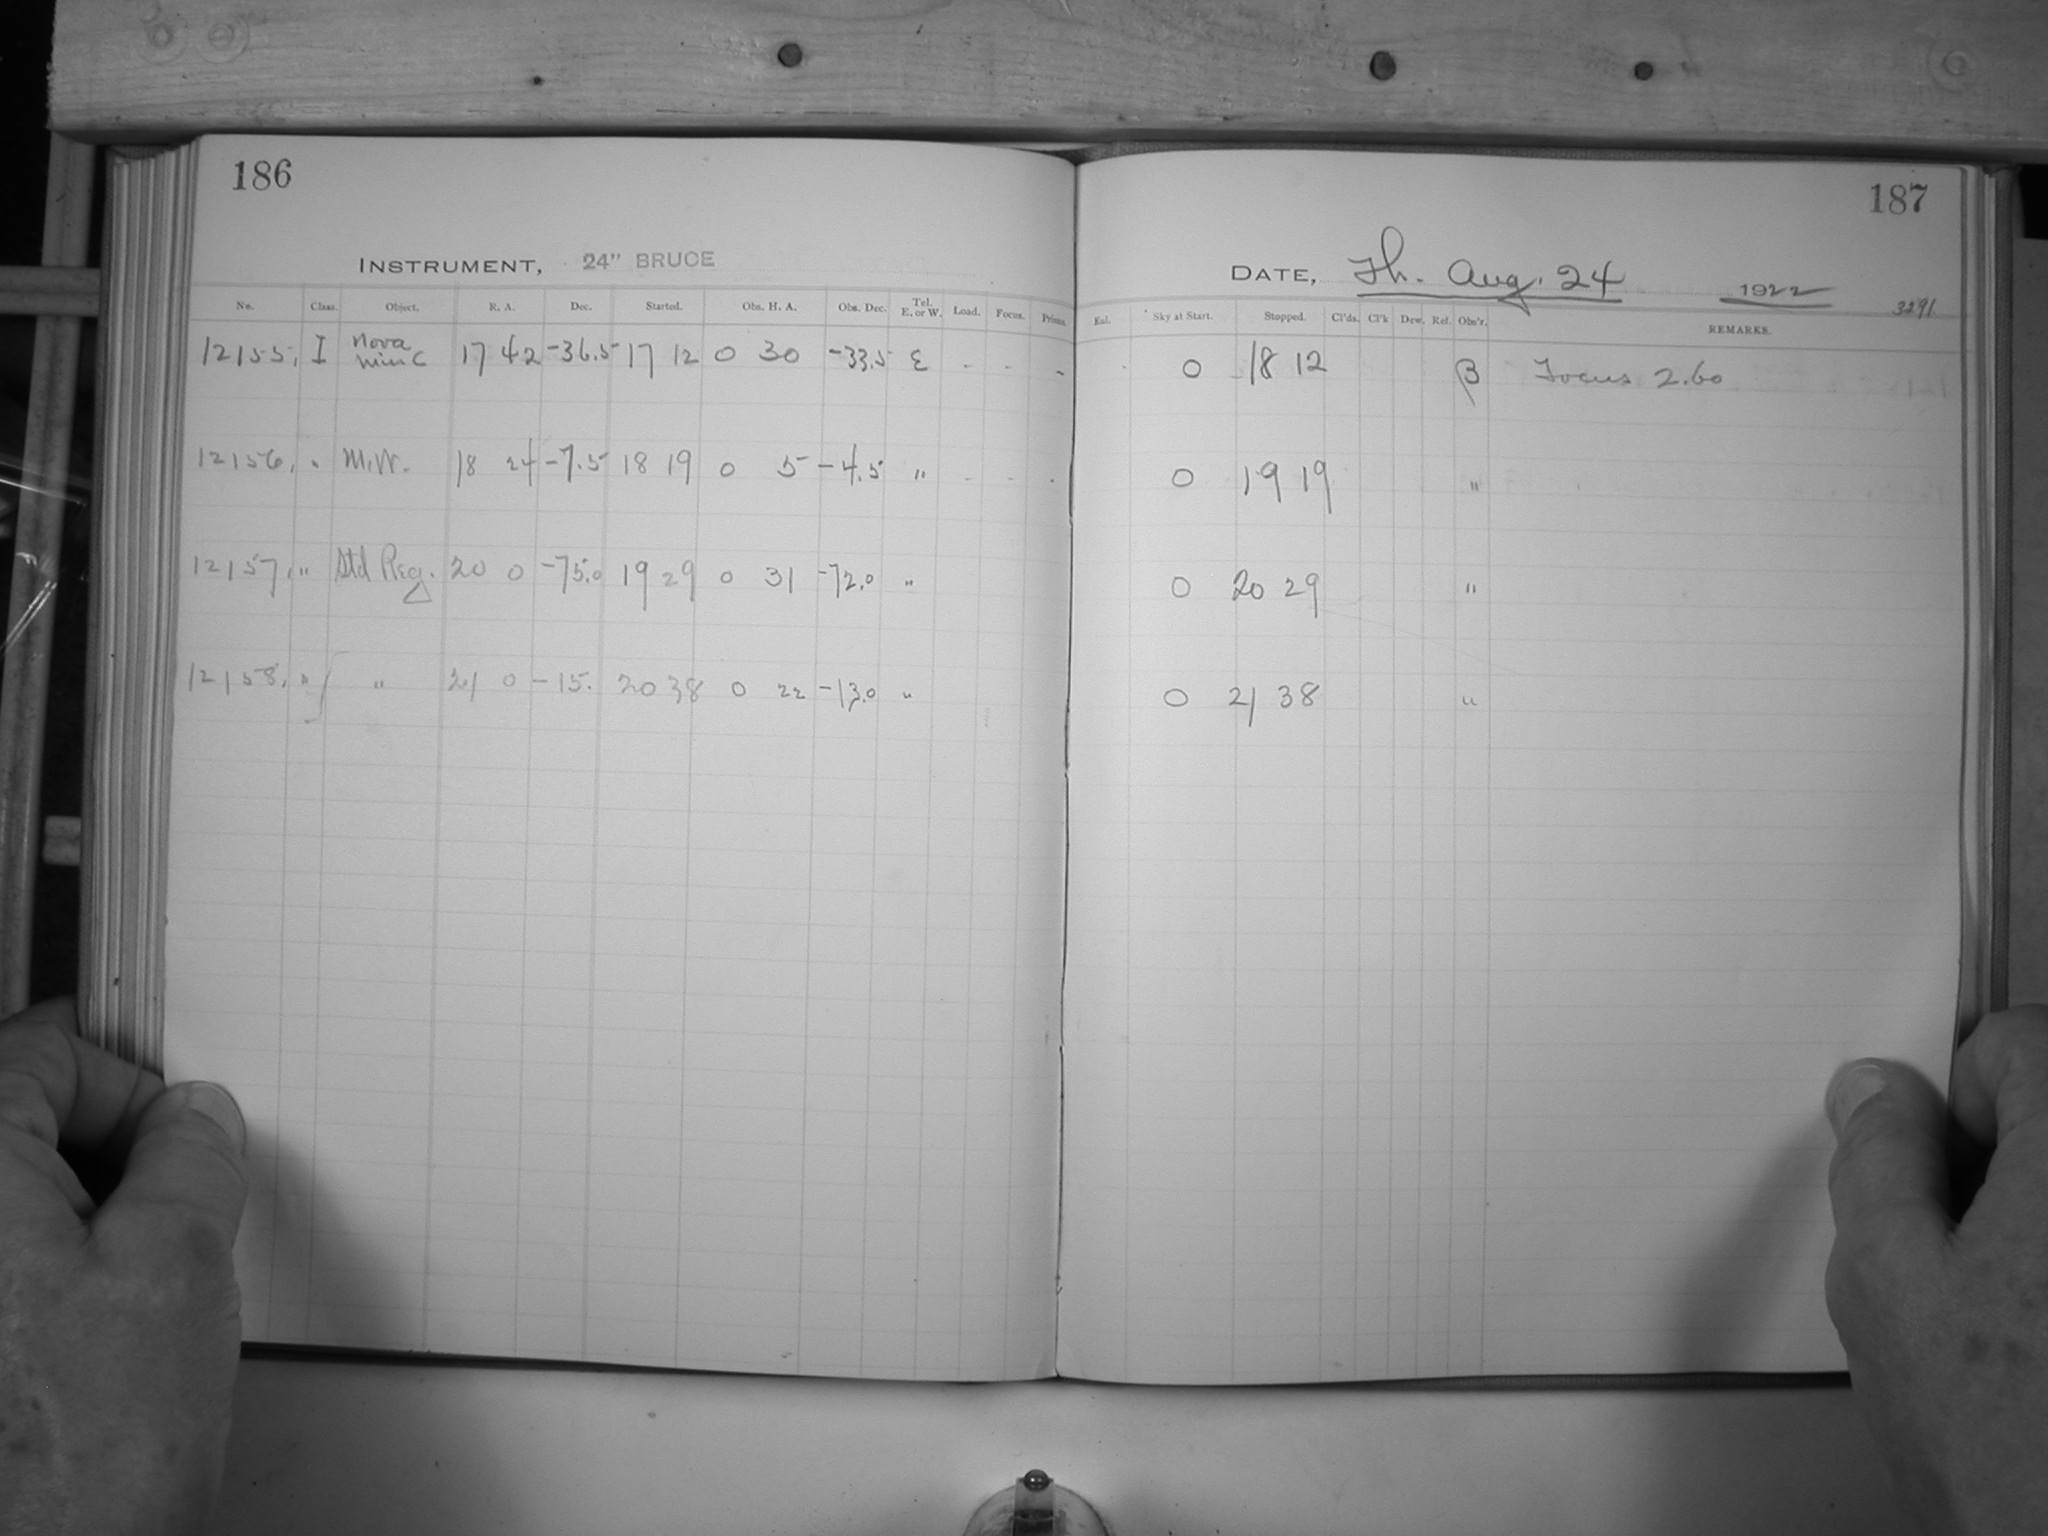 186
INSTRUMENT, 24" BRUCE
No. Class. Object. R. A. Dec. Started. Obs. H. A. Obs. Dec. Tel. E. or W. Load. Focus. Prisms.
12155, I Nova 17 42 -36.5 17 12 0 30 -33.5 E - - -
12156, " M.W. 18 24 -7.5 18 19 0 5 -4.5 " - - -
12157, " Std Reg. △ 20 0 -75.0 19 29 0 31 -72.0 "
12158, " " 21 0 -15. 20 38 0 22 -13.0 "
187
DATE, Th. Aug. 24 1922
3291
Sky at Start. Stopped. Cl'ds. Cl'k Dew. Ref. Obs'r. REMARKS.
0 18 12 β Focus 2.60
0 19 19 "
0 20 29 "
0 21 38 "